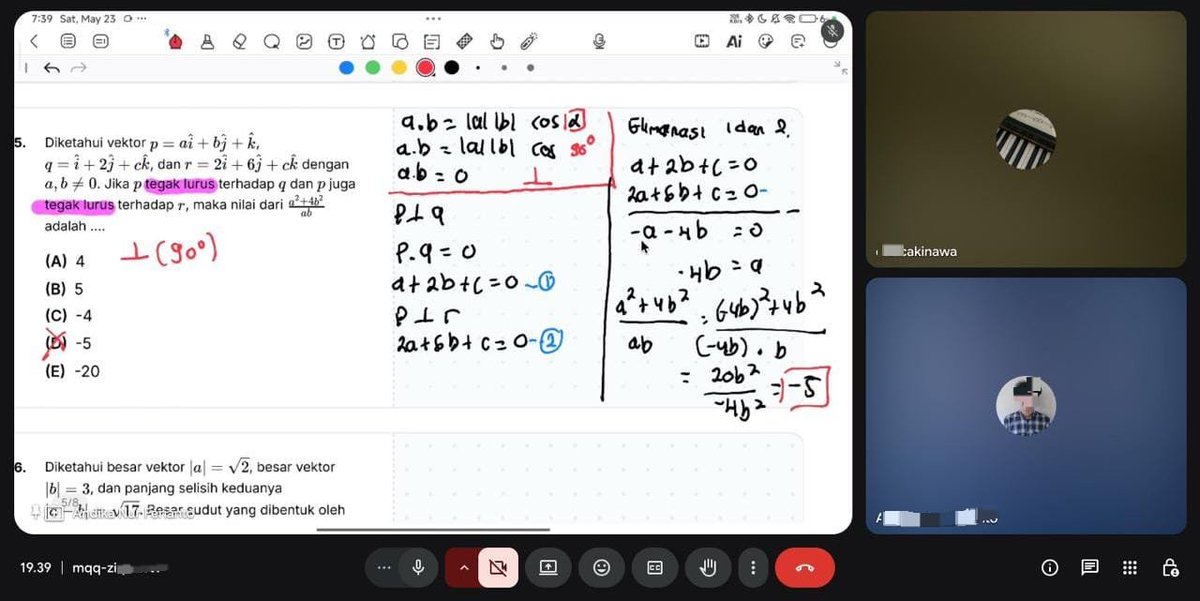 7:39 Sat, May 23
Ai
5. Diketahui vektor p = aî + bĵ + k̂,
q = î + 2ĵ + ck̂, dan r = 2î + 6ĵ + ck̂ dengan
a, b ≠ 0. Jika p tegak lurus terhadap q dan p juga
tegak lurus terhadap r, maka nilai dari (a²+4b²)/ab
adalah ....
(A) 4
(B) 5
(C) -4
(D) -5
(E) -20
⊥ (90°)
a.b = |a| |b| cos α
a.b = |a| |b| cos 90°
a.b = 0 ⊥
P ⊥ q
P.q = 0
a + 2b + c = 0 - 1
P ⊥ r
2a + 6b + c = 0 - 2
Eliminasi 1 dan 2.
a + 2b + c = 0
2a + 6b + c = 0 -
-a - 4b = 0
-4b = a
(a² + 4b²)/ab = ((-4b)² + 4b²)/((-4b) . b)
= 20b²/-4b² = -5
6. Diketahui besar vektor |a| = √2, besar vektor
|b| = 3, dan panjang selisih keduanya
√17. Besar sudut yang dibentuk oleh
5/8
cakinawa
19.39 | mqq-zi